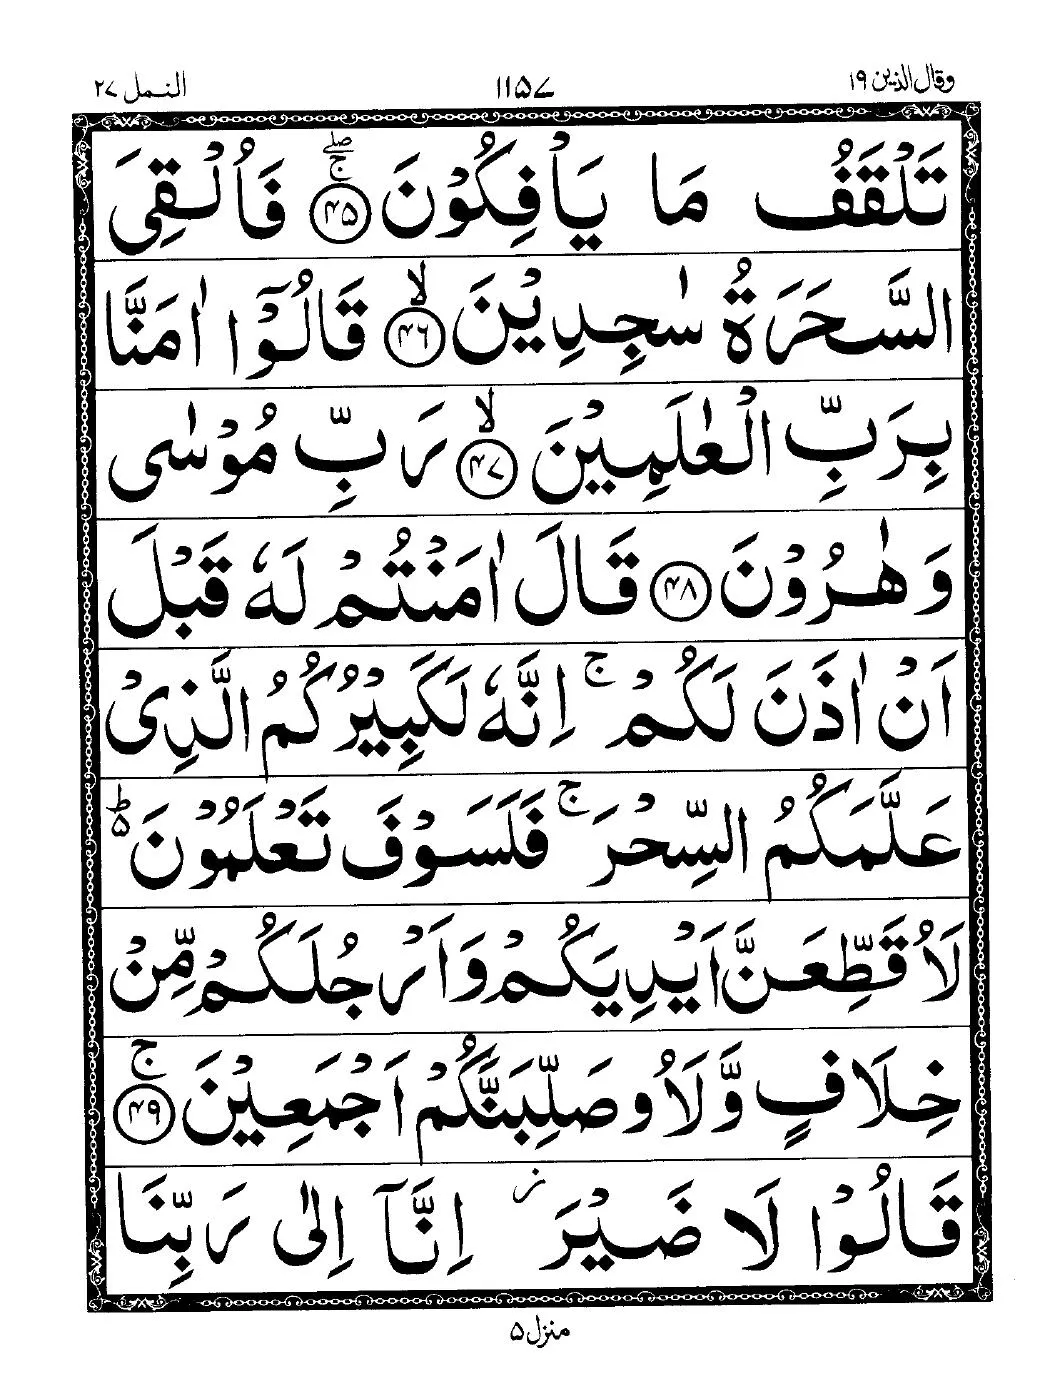 وقال الذين ١٩
١١۵۷
النمل ٢٧
تَلْقَفُ مَا يَاْفِكُوْنَ ۚۖ ﴿۴۵﴾ فَاُلْقِيَ
السَّحَرَةُ سٰجِدِيْنَ ۙ ﴿۴۶﴾ قَالُوْۤا اٰمَنَّا
بِرَبِّ الْعٰلَمِيْنَ ۙ ﴿۴۷﴾ رَبِّ مُوْسٰى
وَهٰرُوْنَ ﴿۴۸﴾ قَالَ اٰمَنْتُمْ لَهٗ قَبْلَ
اَنْ اٰذَنَ لَكُمْ ۚ اِنَّهٗ لَكَبِيْرُكُمُ الَّذِىْ
عَلَّمَكُمُ السِّحْرَ ۚ فَلَسَوْفَ تَعْلَمُوْنَ ؕ۵
لَاُقَطِّعَنَّ اَيْدِيَكُمْ وَاَرْجُلَكُمْ مِّنْ
خِلَافٍ وَّلَاُوصَلِّبَنَّكُمْ اَجْمَعِيْنَ ۚ ﴿۴۹﴾
قَالُوْا لَا ضَيْرَ ز اِنَّاۤ اِلٰى رَبِّنَا
منزل ۵